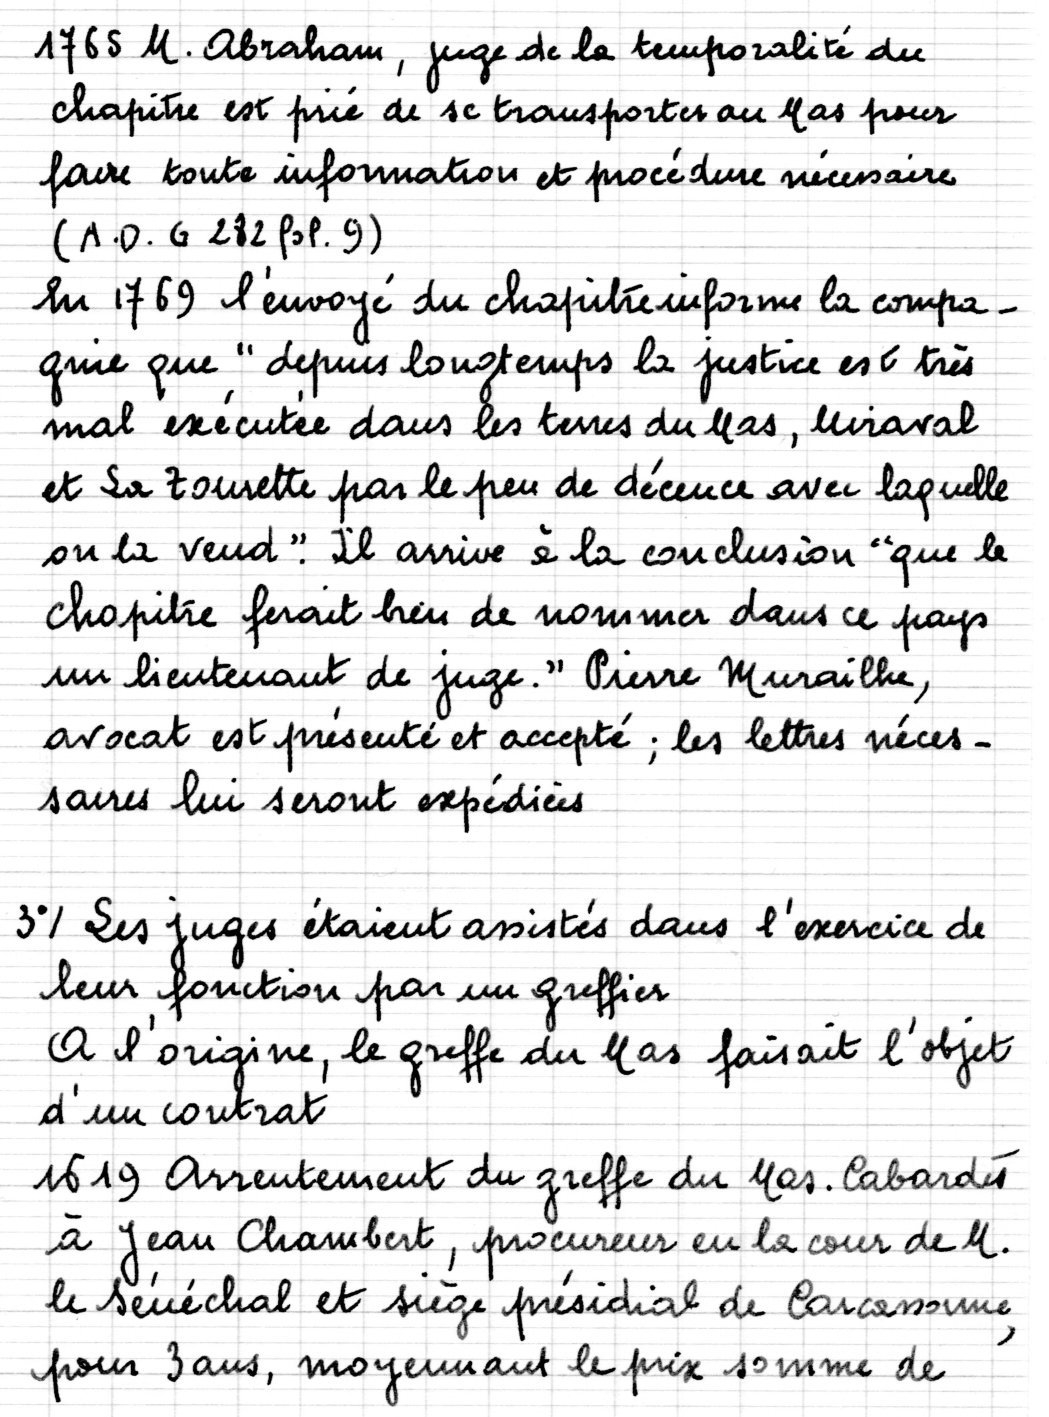 1765 M. Abraham, juge de la temporalité du
chapitre est prié de se transporter au Mas pour
faire toute information et procédure nécessaire
(A.D. G 282 fol. 9)
En 1769 l'envoyé du chapitre informe la compa-
gnie que " depuis longtemps la justice est très
mal exécutée dans les terres du Mas, Miraval
et La Tourette par le peu de décence avec laquelle
on la rend". Il arrive à la conclusion "que le
chapitre ferait bien de nommer dans ce pays
un lieutenant de juge." Pierre Murailhe,
avocat est présenté et accepté ; les lettres néces-
saires lui seront expédiées
3°/ Les juges étaient assistés dans l'exercice de
leur fonction par un greffier
A l'origine, le greffe du Mas faisait l'objet
d'un contrat
1619 Arrentement du greffe du Mas. Cabardès
à Jean Chambert, procureur en la cour de M.
le Sénéchal et siège présidial de Carcassonne,
pour 3 ans, moyennant le prix somme de